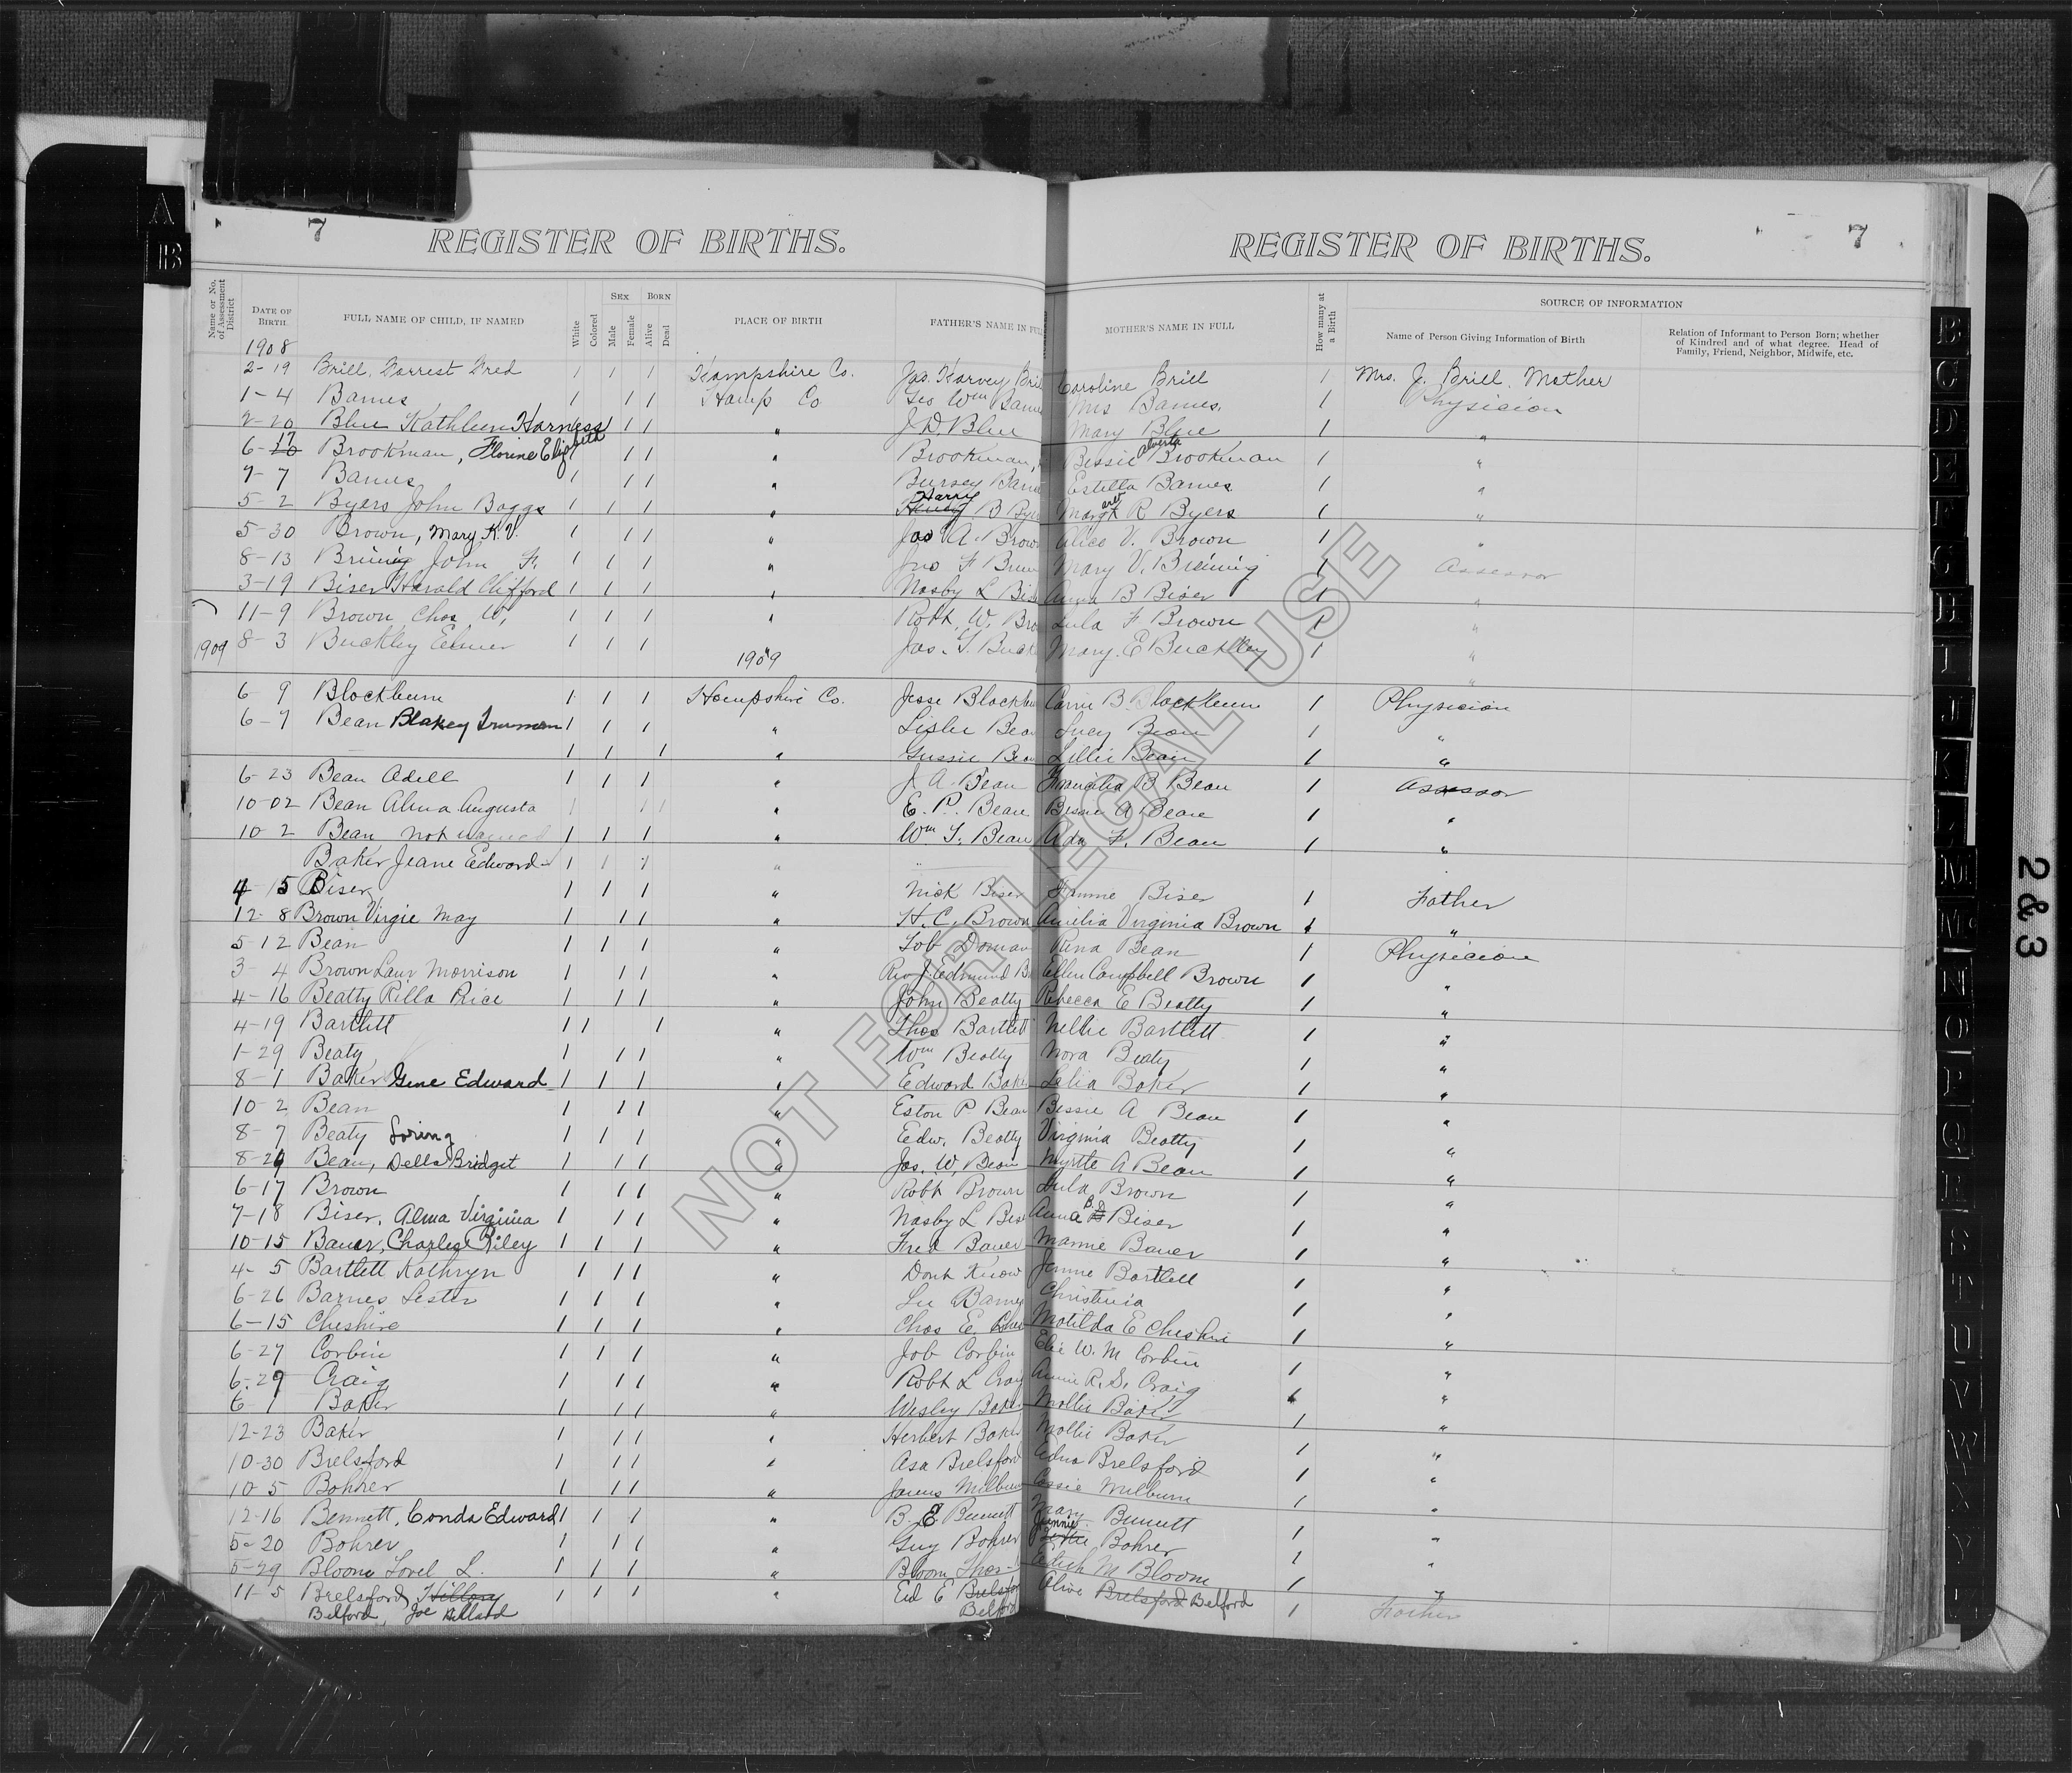 A
B
7
REGISTER OF BIRTHS.
REGISTER OF BIRTHS.
7
Name or No. of Assessment District
DATE OF BIRTH
FULL NAME OF CHILD, IF NAMED
White
Colored
SEX
Male
Female
BORN
Alive
Dead
PLACE OF BIRTH
FATHER'S NAME IN FULL
MOTHER'S NAME IN FULL
How many at a Birth
SOURCE OF INFORMATION
Name of Person Giving Information of Birth
Relation of Informant to Person Born; whether of Kindred and of what degree. Head of Family, Friend, Neighbor, Midwife, etc.
1908
2-19 Brill, Forrest Fred 1 1 1 Hampshire Co. Jas. Harvey Bril Caroline Brill 1 Mrs. J. Brill, Mother
1-4 Barnes 1 1 1 Hamp Co Geo Wm Barne Mrs Barnes. 1 Physician
2-20 Blue Kathleen Harness 1 1 " J.D. Blue Mary Blue 1 "
6-17 Brookman, Florine Elizabeth 1 1 " Brookman, Bessie Alverta Brookman 1 "
7-7 Barnes 1 1 1 " Bursey Barne Estella Barnes 1 "
5-2 Byers John Boggs 1 1 1 " Harry B Byer Margaret R Byers 1 "
5-30 Brown, Mary K.V. 1 1 1 " Jas A. Brown Alice V. Brown 1 "
8-13 Breinig John F. 1 1 1 " Jno F Mary V. Breinig 1 Assessor
3-19 Biser Harald Clifford 1 1 1 " Nasby L Bise Anna B Biser 1 "
11-9 Brown, Chas W, 1 1 1 " Robt. W. Bro Lula F Brown 1 "
1909 8-3 Buckley Elmer 1 1 1 " Jas. T. Buck Mary E Buckley 1 "
1909 "
6 9 Blackburn 1 1 1 Hampshire Co. Jesse Blackbu Carrie B. Blackburn 1 Physician
6-7 Bean Blakey Truman 1 1 1 " Lislie Bea Lucy Bean 1 "
1 1 1 " Gussie Bea Lillie Bean 1 "
6-23 Bean Adell 1 1 1 " J. A. Bean B Bean 1 Assessor
10-02 Bean Alma Augusta 1 1 1 " E. P. Bean Bessie A Bean 1 "
10-2 Bean not named 1 1 1 " Wm T. Bean Ada F. Bean 1 "
Baker Jeane Edward 1 1 1 "
4 15 Biser 1 1 1 " Nick Biser Fannie Biser 1 Father
12-8 Brown Virgie May 1 1 1 " H. C. Brown Amelia Virginia Brown 1 "
5-12 Bean 1 1 1 " Job Doman Rena Bean 1 Physician
3-4 Brown Laur Morrison 1 1 1 " Rev J. Edmund Br Ellen Campbell Brown 1 "
4-16 Beatty Rilla Rice 1 1 1 " John Beatty Rebecca E Beatty 1 "
4-19 Bartlett 1 1 1 " Thos Bartlett Nellie Bartlett 1 "
1-29 Beaty 1 1 1 " Wm Beatty Nora Beaty 1 "
8-1 Baker Gene Edward 1 1 1 " Edward Bake Lelia Baker 1 "
10-2 Bean 1 1 1 " Eston P Bean Bessie A Bean 1 "
8-7 Beaty Loring 1 1 1 " Edw. Beatty Virginia Beatty 1 "
8-29 Bean, Della Bridget 1 1 1 " Jas. W. Bean Myrtle A Bean 1 "
6-17 Brown 1 1 1 " Robt Brown Lula Brown 1 "
7-18 Biser, Alma Virginia 1 1 1 " Nasby L Bis Anna B. D. Biser 1 "
10-15 Bauer, Charles Riley 1 1 1 " Fred Bauer Mamie Bauer 1 "
4-5 Bartlett Kathryn 1 1 1 " Dont Know Jennie Bartlett 1 "
6-26 Barnes Lester 1 1 1 " Lee Barne Christenia 1 "
6-15 Cheshire 1 1 1 " Chas E. Ches Matilda E Cheshire 1 "
6-27 Corbin 1 1 1 " Job Corbin W. M Corbin 1 "
6-29 Craig 1 1 1 " Robt L Craig Annie R. S. Craig 1 "
6-1 Baker 1 1 1 " Wesley Bake Mollie Baker 1 "
12-23 Baker 1 1 1 " Herbert Bake Mollie Baker 1 "
10-30 Brelsford 1 1 1 " Asa Brelsford Edna Brelsford 1 "
10-5 Bohrer 1 1 1 " James Milbur Cassie Milburn 1 "
12-16 Bennett, Conda Edward 1 1 1 " B. E. Bennett Mary Bennett 1 "
5-20 Bohrer 1 1 1 " Guy Bohrer Jennie Bohrer 1 "
5-29 Bloom Lovel L. 1 1 1 " Bloom Thos Edith M Bloom 1 "
11-5 Brelsford, Hillary 1 1 1 " Ed E Brelsfor Alive Brelsford Belford 1 Father
Belford, Joe Hillard Belford
NOT FOR LEGAL USE
B
C
D
E
F
G
H
I
J
K
L
M
Mc
N
O
P
Q
R
S
T
U
V
W
X
Y
2&3